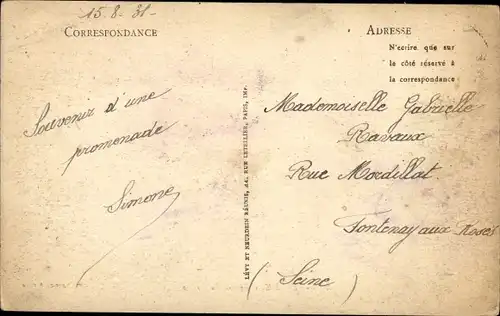 15-8-31-
CORRESPONDANCE
Souvenir d'une
promenade
Simone
LÉVY ET NEURDEIN RÉUNIS, 44, RUE LETELLIER, PARIS, IMP.
ADRESSE
N'écrire que sur
le côté réservé à
la correspondance
Mademoiselle Gabrielle
Ravaux
Rue Mordillat
Fontenay aux Roses
(Seine)